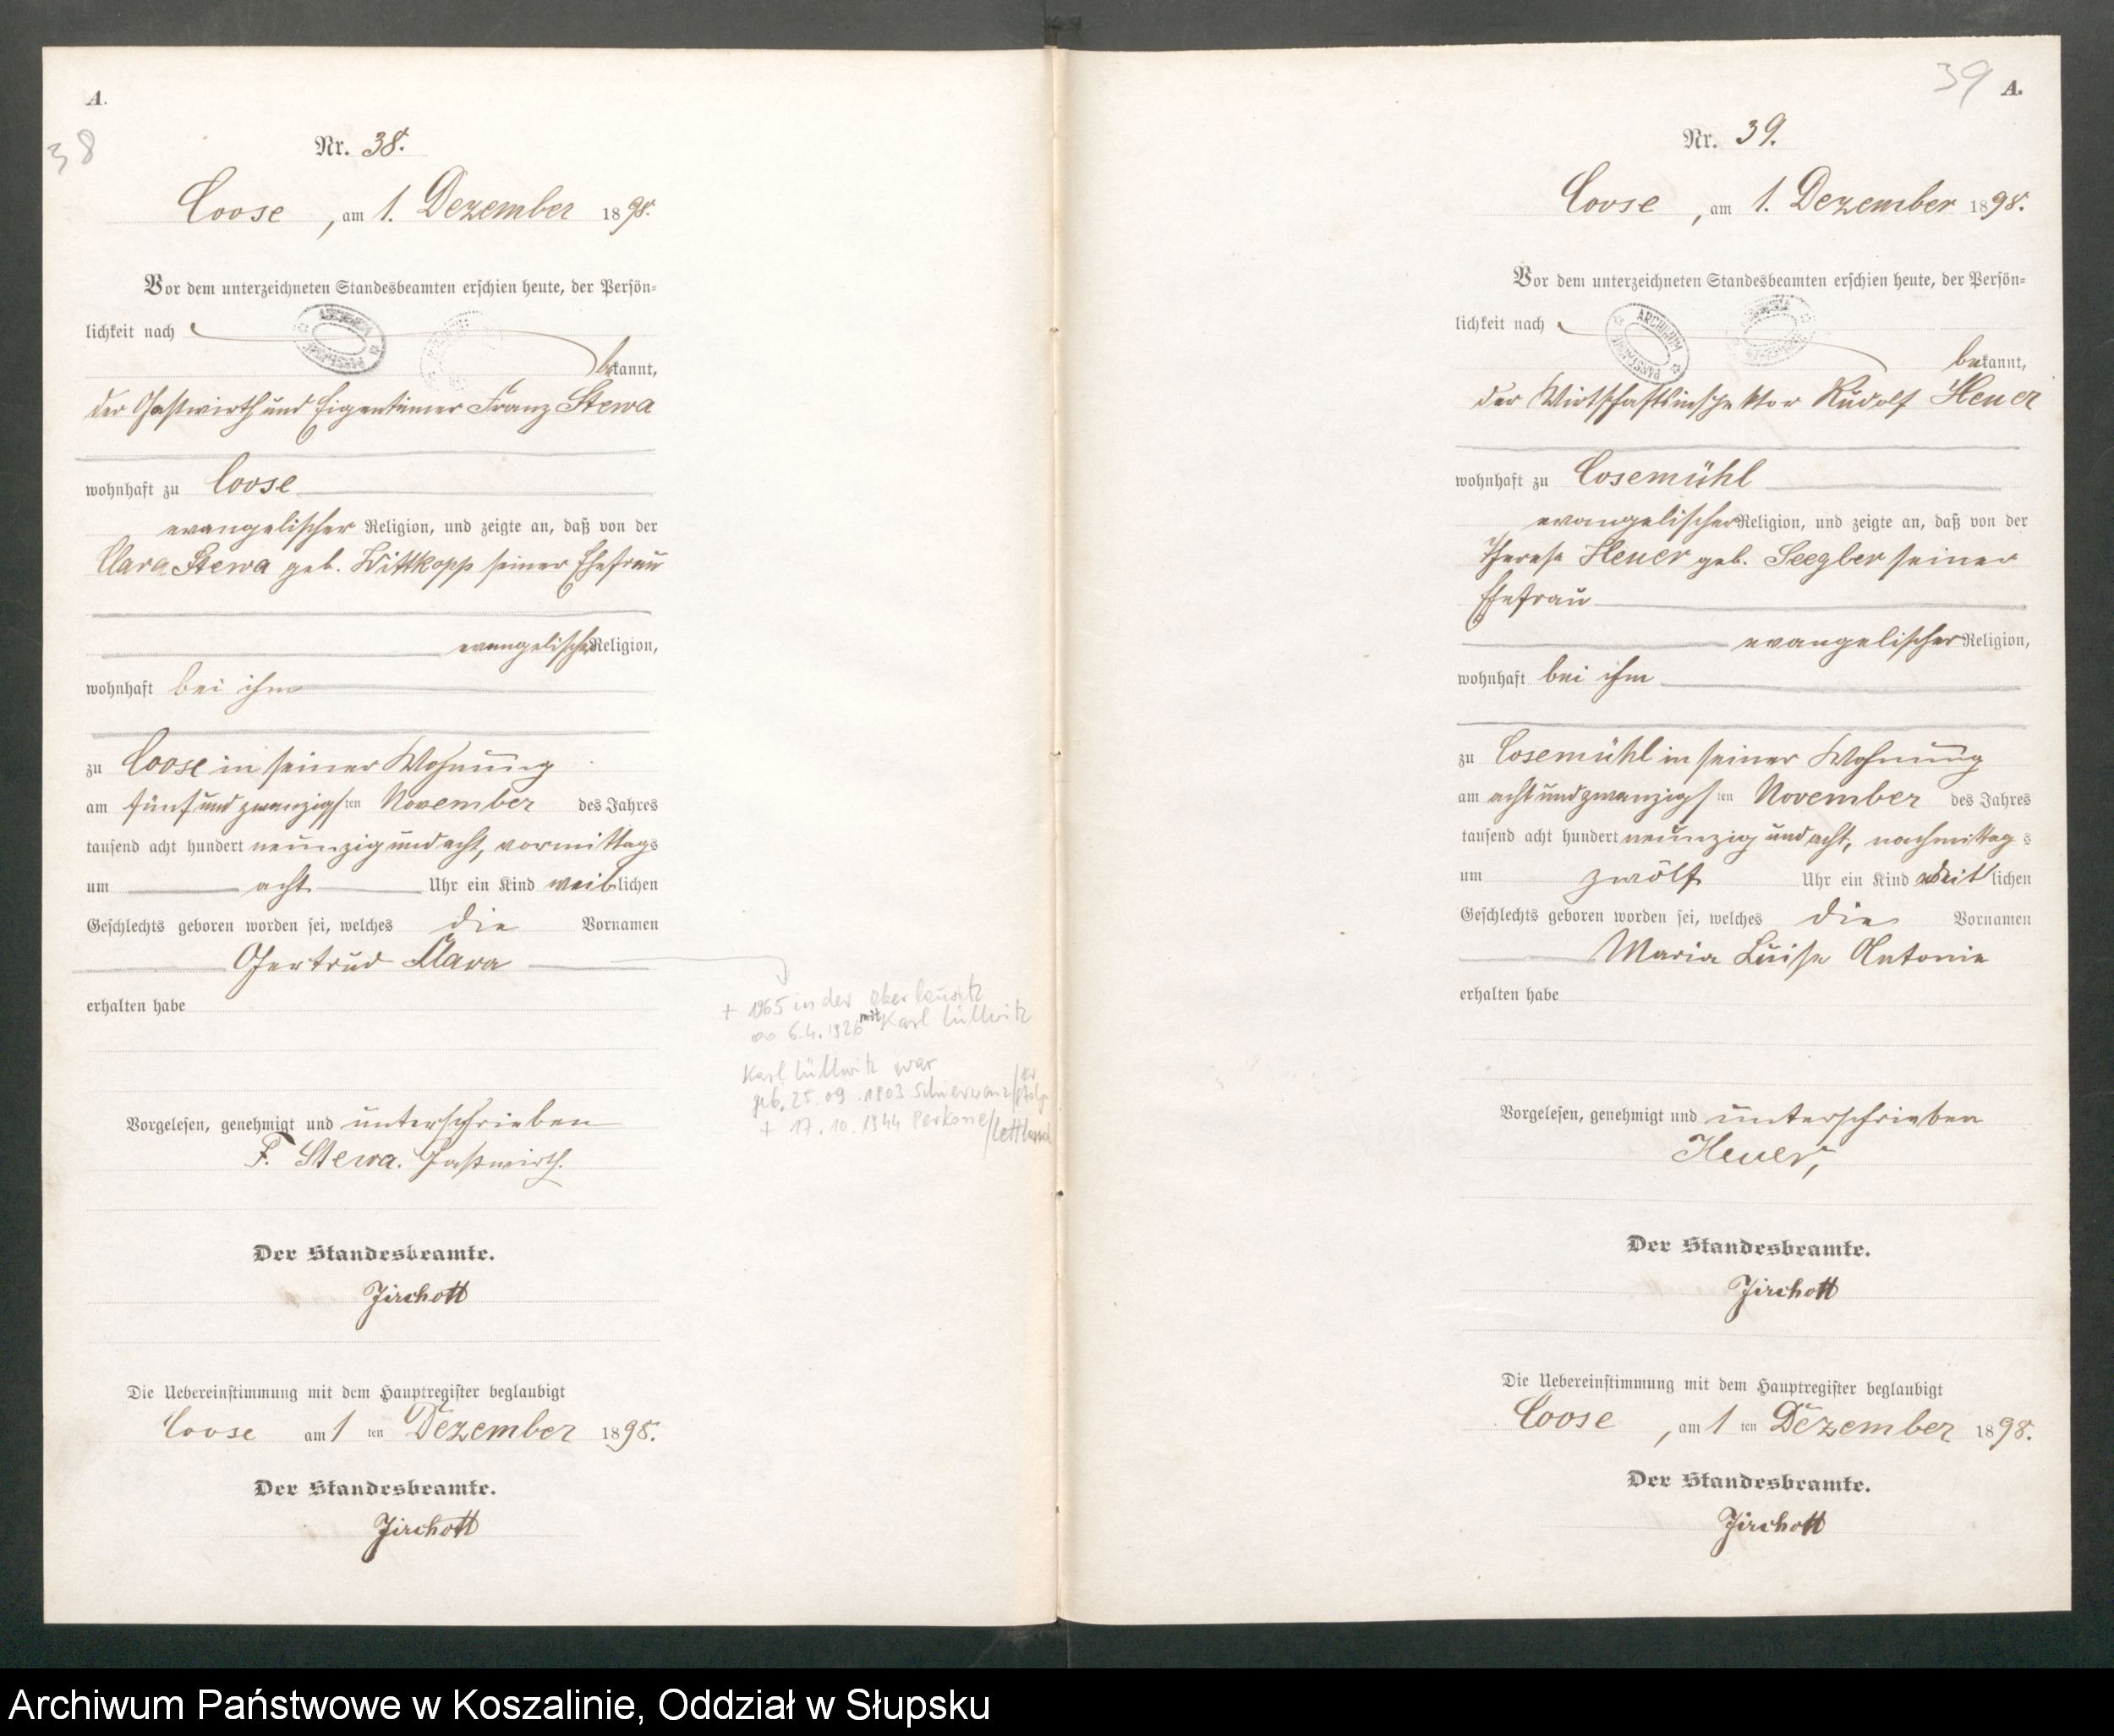 A.
38
Nr. 38.
Coose, am 1. Dezember 1898.
Vor dem unterzeichneten Standesbeamten erschien heute, der Persön=
lichkeit nach
bekannt,
der Gastwirth und Eigentümer Franz Stewa
wohnhaft zu Coose
evangelischer Religion, und zeigte an, daß von der
Clara Stewa geb. Wittkopp seiner Ehefrau
evangelischer Religion,
wohnhaft bei ihm
zu Coose in seiner Wohnung
am fünfundzwanzigsten November des Jahres
tausend acht hundert neunzig und acht, vormittags
um acht Uhr ein Kind weiblichen
Geschlechts geboren worden sei, welches die Vornamen
Gertrud Clara
erhalten habe
+ 1965 in der Oberlausitz
oo 6.4.1926 mit Karl Lüllwitz
Karl Lüllwitz war
geb. 25.09.1903 Schierwanz/Kr Stolp
+ 17.10.1944 Perkone/Lettland
Vorgelesen, genehmigt und unterschrieben
F. Stewa. Gastwirth.
Der Standesbeamte.
Jirchott
Die Uebereinstimmung mit dem Hauptregister beglaubigt
Coose am 1 ten Dezember 1898.
Der Standesbeamte.
Jirchott
39
A.
Nr. 39.
Coose, am 1. Dezember 1898.
Vor dem unterzeichneten Standesbeamten erschien heute, der Persön=
lichkeit nach
ARCHIWUM
bekannt,
der Wirtschaftsinspektor Rudolf Heuer
wohnhaft zu Cosemühl
evangelischer Religion, und zeigte an, daß von der
Therese Heuer geb. Seegber seiner
Ehefrau
evangelischer Religion,
wohnhaft bei ihm
zu Cosemühl in seiner Wohnung
am achtundzwanzigsten November des Jahres
tausend acht hundert neunzig und acht, nachmittags
um zwölf Uhr ein Kind weiblichen
Geschlechts geboren worden sei, welches die Vornamen
Maria Luise Antonie
erhalten habe
Vorgelesen, genehmigt und unterschrieben
Heuer,
Der Standesbeamte.
Jirchott
Die Uebereinstimmung mit dem Hauptregister beglaubigt
Coose, am 1 ten Dezember 1898.
Der Standesbeamte.
Jirchott
Archiwum Państwowe w Koszalinie, Oddział w Słupsku